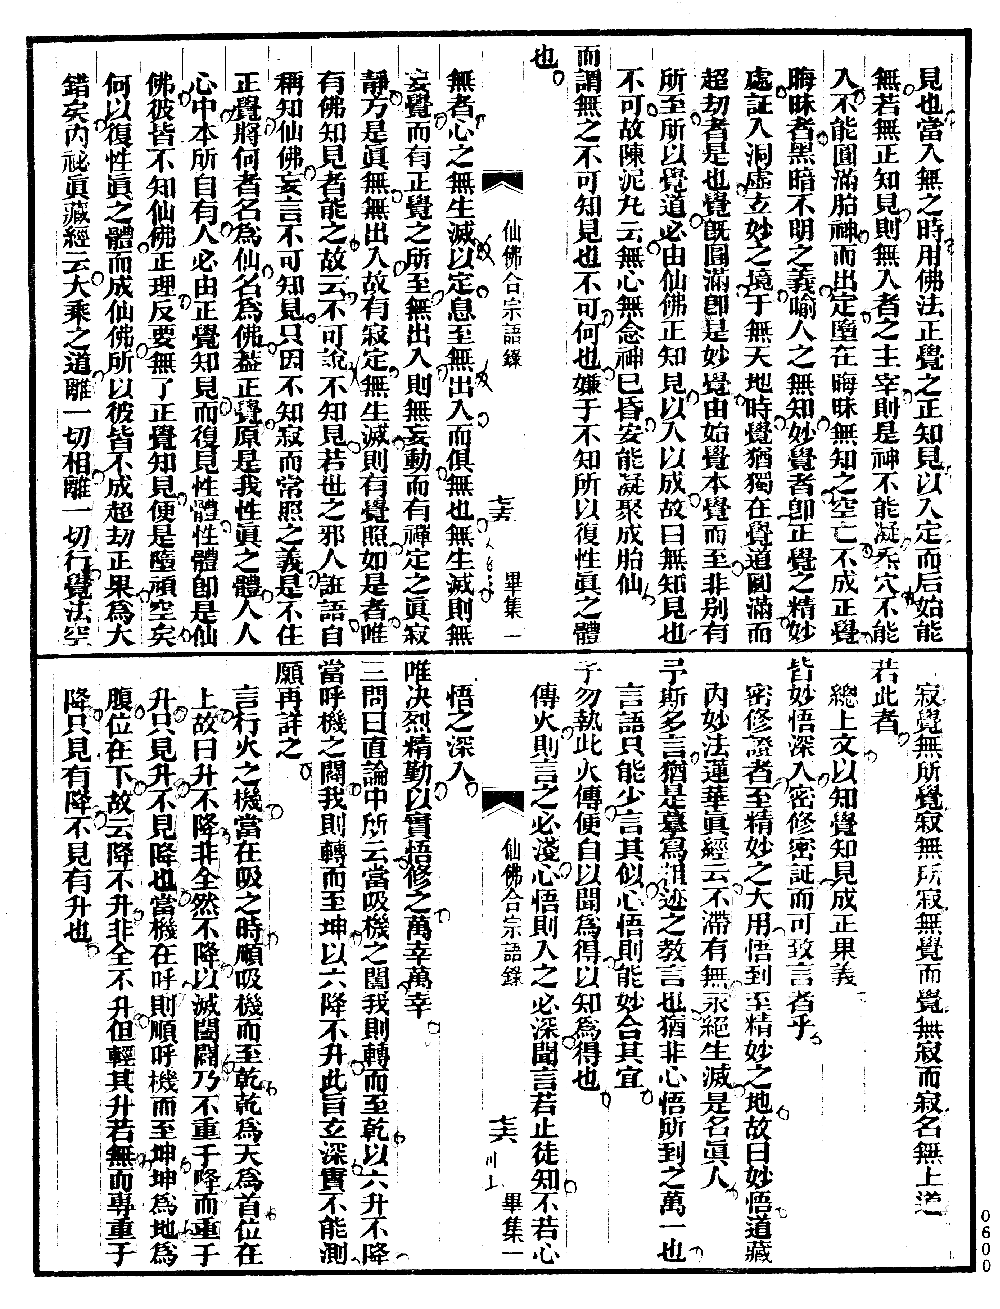 見也當入無之時用佛法正覺之正知見以入定而后始能
無若無正知見則無入者之主宰則是神不能凝炁穴不能
入不能圓滿胎神而出定墮在晦昧無知之空亡不成正覺
晦昧者黑暗不明之義喻人之無知妙覺者卽正覺之精妙
處証入洞虛玄妙之境于無天地時覺猶獨在覺道圓滿而
超刧者是也覺旣圓滿卽是妙覺由始覺本覺而至非别有
所至所以覺道必由仙佛正知見以入以成故曰無知見也
不可故陳泥丸云無心無念神已昏安能凝聚成胎仙
而謂無之不可知見也不可何也嫌于不知所以復性眞之體
也
仙佛合宗語錄
畢集一
無者心之無生滅以定息至無出入而俱無也無生滅則無
妄覺而有正覺之所至無出入則無妄動而有禪定之眞寂
靜方是眞無無出入故有寂定無生滅則有覺照如是者唯
有佛知見者能之故云不可說不知見若世之邪人誑語自
稱知仙佛妄言不可知見只因不知寂而常照之義是不住
正覺將何者名爲仙名爲佛葢正覺原是我性眞之體人人
心中本所自有人必由正覺知見而復見性體性體卽是仙
佛彼皆不知仙佛正理反要無了正覺知見便是墮頑空矣
何以復性眞之體而成仙佛所以彼皆不成超刧正果爲大
錯矣內祕眞藏經云大乘之道離一切相離一切行覺法空
寂覺無所覺寂無所寂無覺而覺無寂而寂名無上道
若此者
總上文以知覺知見成正果義
皆妙悟深入密修密証而可致言者乎
密修證者至精妙之大用悟到至精妙之地故曰妙悟道藏
內妙法蓮華眞經云不滯有無永絕生滅是名眞人
予斯多言猶是摹寫粗迹之教言也猶非心悟所到之萬一也
言語只能少言其似心悟則能妙合其宜
子勿執此火傳便自以聞爲得以知爲得也
傳火則言之必淺心悟則入之必深聞言若止徒知不若心
仙佛合宗語錄
畢集一
悟之深入
唯决烈精勤以實悟修之萬幸萬幸
三問曰直論中所云當吸機之闔我則轉而至乾以六升不降
當呼機之闢我則轉而至坤以六降不升此旨玄深實不能測
願再詳之
言行火之機當在吸之時順吸機而至乾乾爲天爲首位在
上故曰升不降非全然不降以滅闔闢乃不重于降而重于
升只見升不見降也當機在呼則順呼機而至坤坤爲地爲
腹位在下故云降不升非全不升但輕其升若無而專重于
降只見有降不見有升也
0600